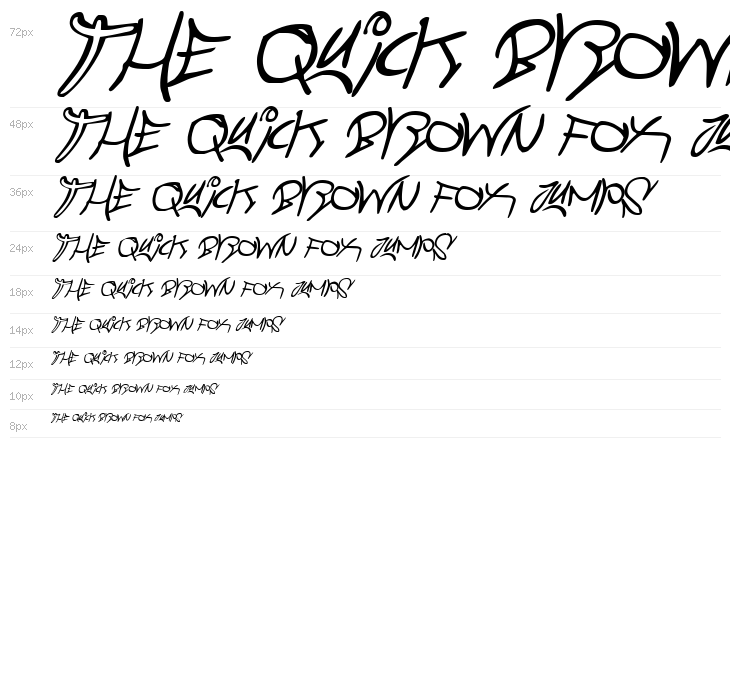 72px THE QUiCK BROWN
48px THE QUiCK BROWN FOX JU
36px THE QUiCK BROWN FOX JUMPS
24px THE QUiCK BROWN FOX JUMPS
18px THE QUiCK BROWN FOX JUMPS
14px THE QUiCK BROWN FOX JUMPS
12px THE QUiCK BROWN FOX JUMPS
10px THE QUiCK BROWN FOX JUMPS
8px THE QUiCK BROWN FOX JUMPS